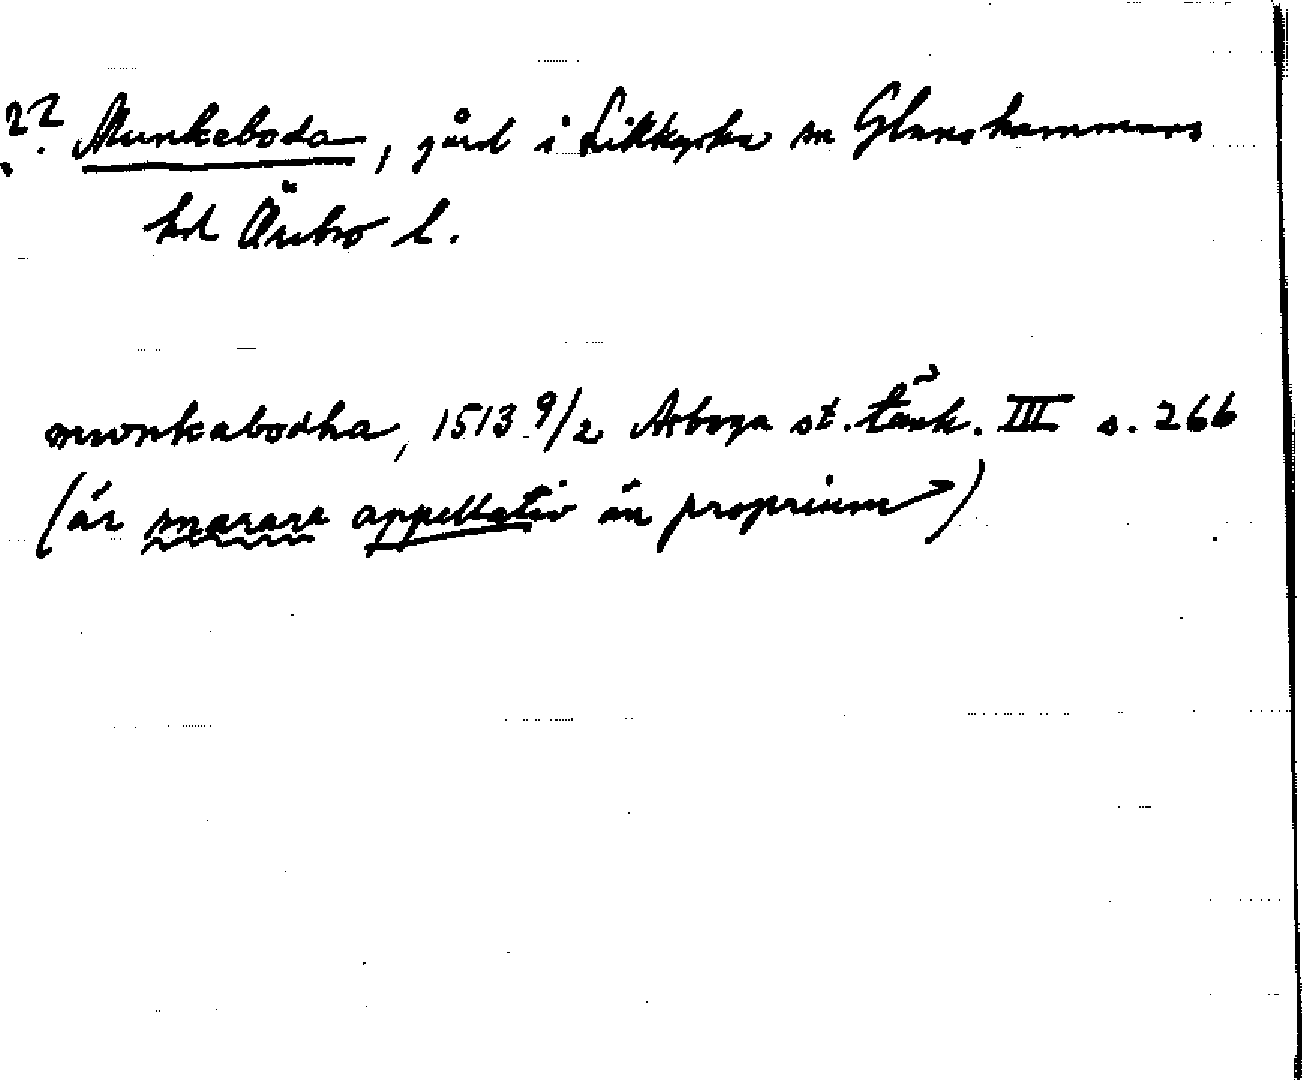 ?? Munkeboda, gård i Lillkyrka sn Glanshammars
hd Örebro l.
munkabodha, 1513 9/2 Arboga st. tänk. III s. 266
(är snarare appellativ än proprium)